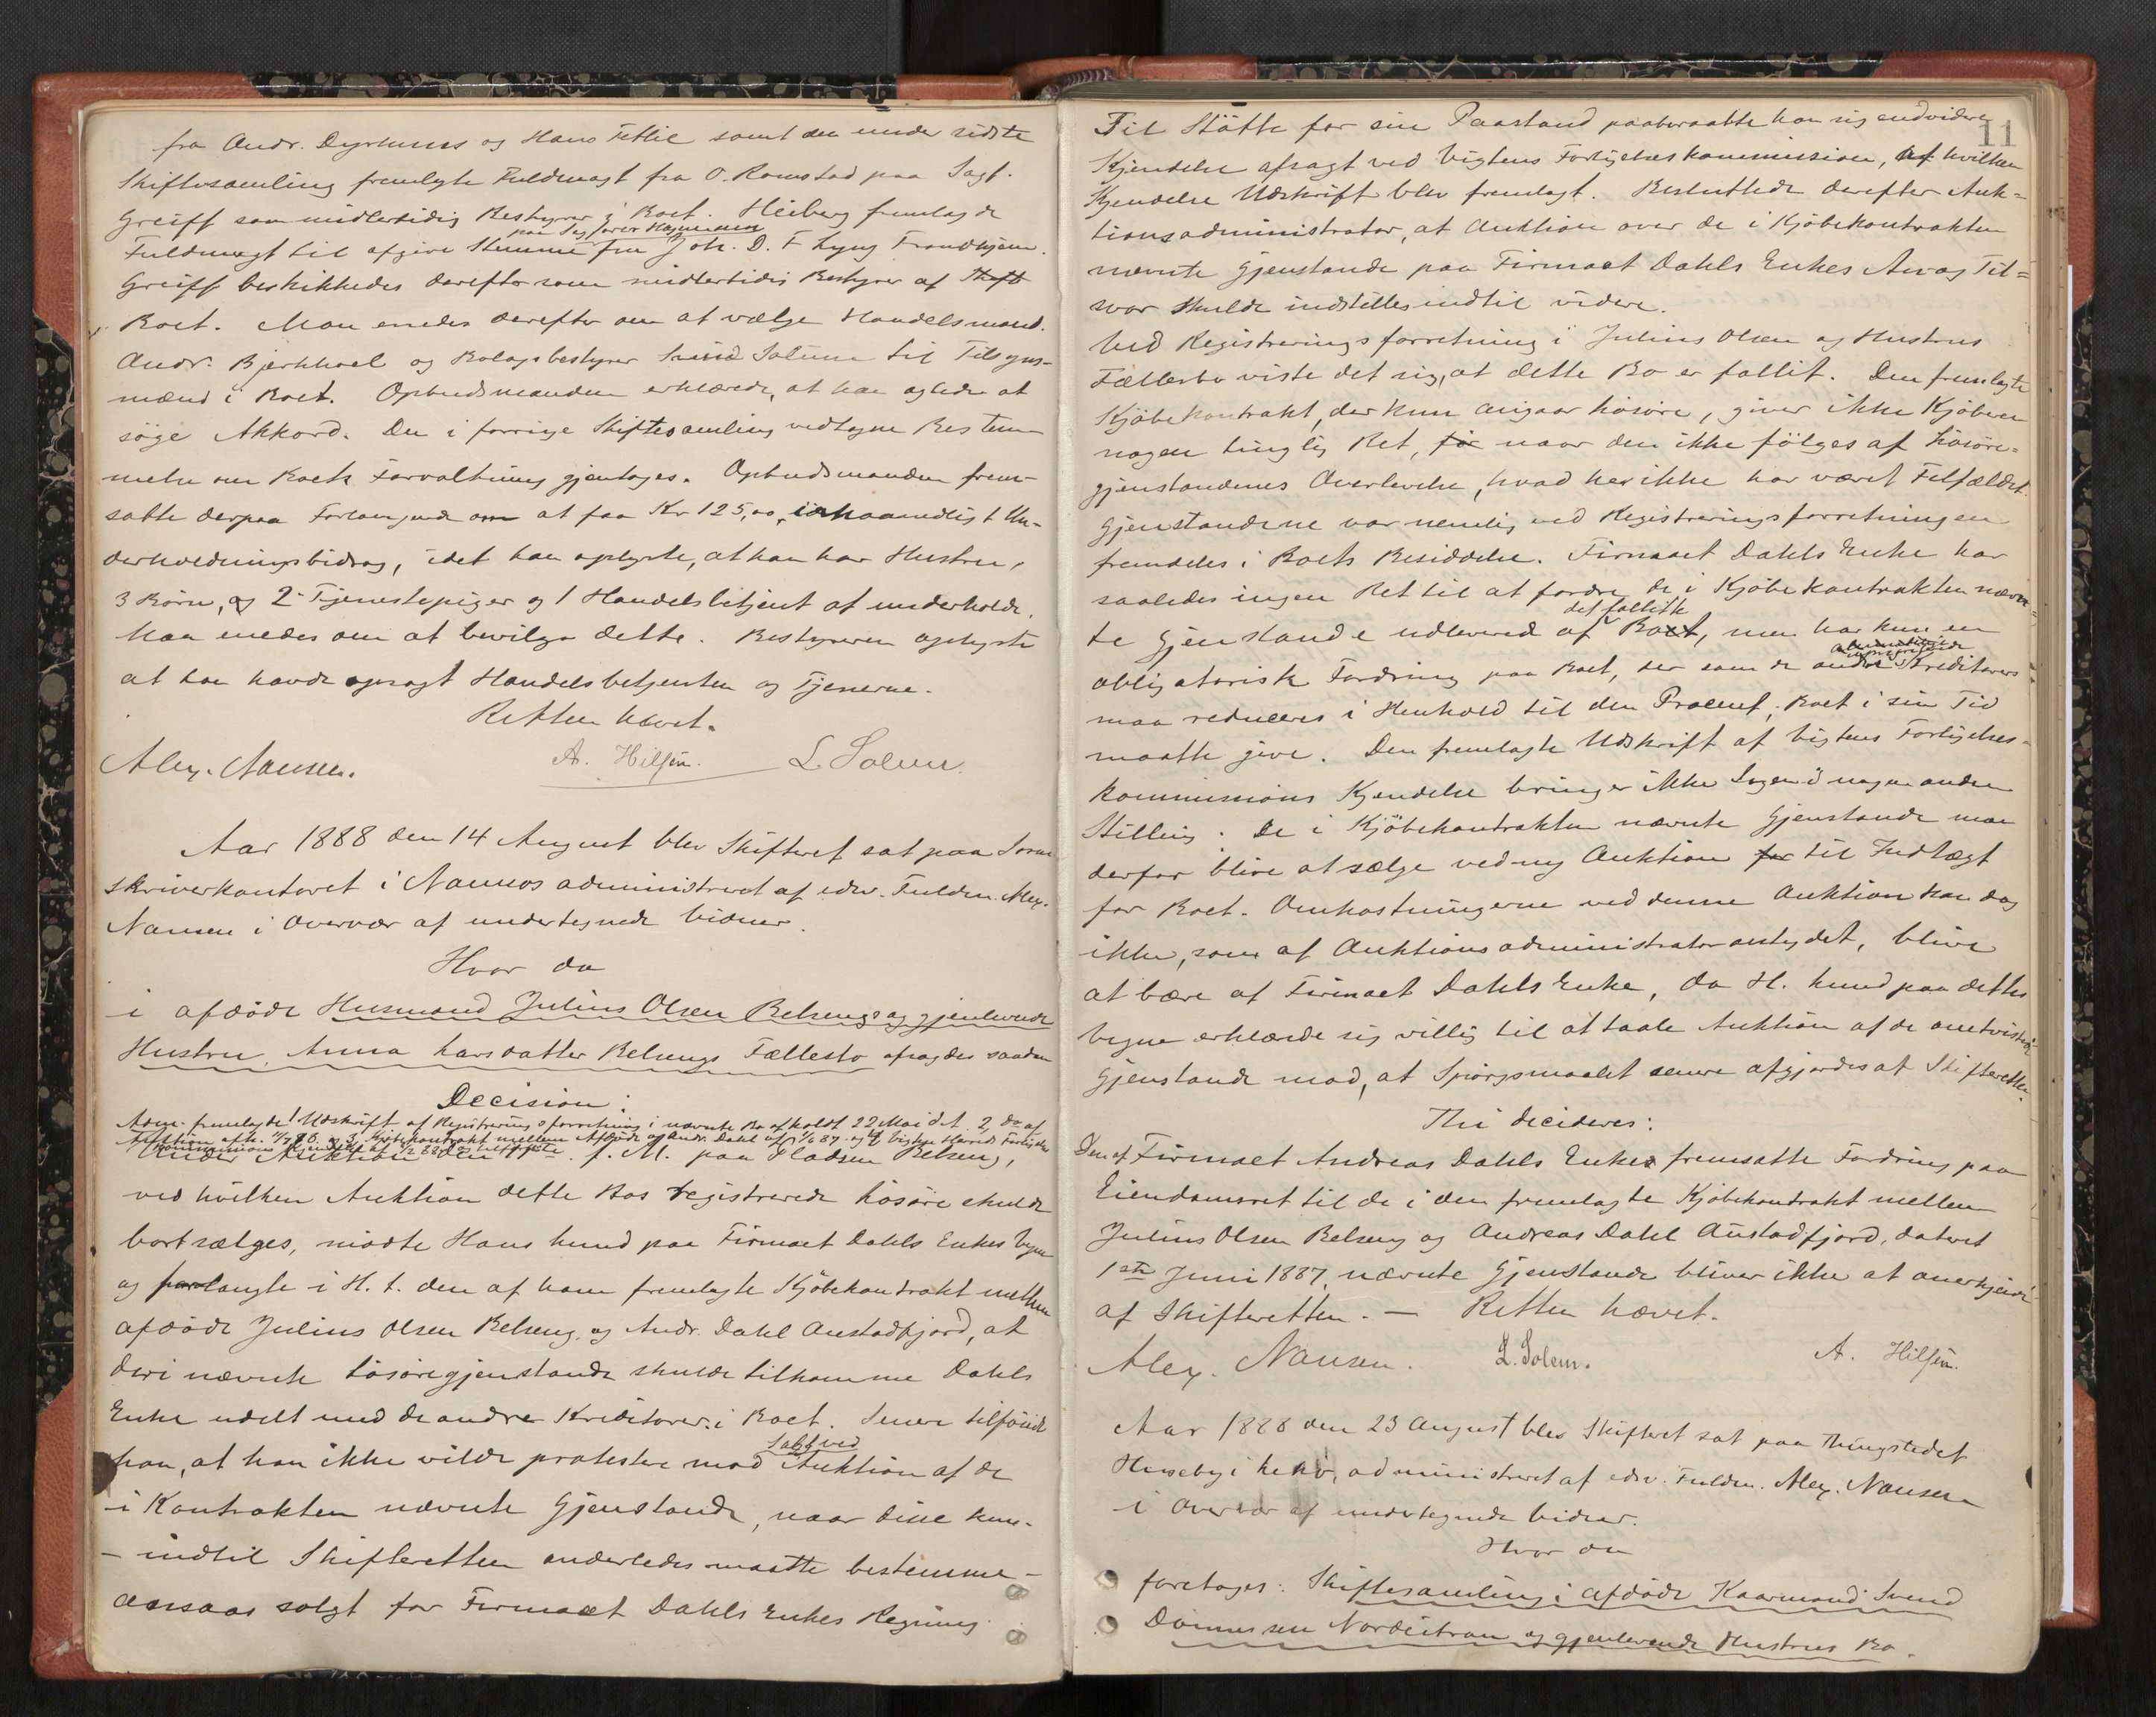 fra Andr. Dyrhuus og Hans Fettie samt den under sidste
Skiftesamling fremlagte Fuldmagt fra O. Ramstad paa Sagf.
Greiff som midlertidig Bestyrer i Boet. Heiberg fremlagde
paa Sagfører Hagemann
Fuldmagt til afgive Stemme fra Joh. D. F Lyng Trondhjem.
Greiff beskikkedes derefter som midlertidig Bestyrer af
Boet. Man enedes derefter om at vælge Handelsmand.
Andr. Bjerkhoel og Bolagsbestyrer Svend Solum til Tilsyns-
mænd i Boet. Opbudsmanden erklærede, at han agtede at
söge Akkord. Den i forrige Skiftesamling vedtagne Bestem-
melse om Boets Forvaltning gjentages. Opbudsmanden frem-
satte derpaa Forlangende om at faa Kr 125,00, i maanedligt Un-
derholdningsbidrag, idet han oplyste, at han har Hustru,
3 Börn, og 2 Tjenestepiger og 1 Handelsbetjent at underholde.
Man enedes om at bevilge dette. Bestyreren oplyste
at han havde opsagt Handelsbetjenten og Tjenerne.
Retten hævet.
Alex. Nansen. A. Hilsen. L Solem.
Aar 1888 den 14 August blev Skifteret sat paa Soren
skriverkontoret i Namsos administreret af edsv. Fuldm. Alex.
Nansen i Overvær af undertegnede Vidner.
Hvor da
i afdöde Husmand Julius Olsen Belsengs og gjenlevende
Hustru, Anna Larsdatter Belsengs Fællesbo afsagdes saadan
Decision:
Adm. fremlagde 1 Udskrift af Registreringsforretning i nævnte Bo afholdt 22 Mai d.A. 2, do af
Auktion afh. 17/7 88. og 3, Kjöbekontrakt mellem Afdöde og Andr. Dahl af 1/6 87. og 4 Vigten Herreds Forligelses
kommissions Kjendelse af
Under Auktion den 17de f. M. paa Pladsen Belseng,
ved hvilken Auktion dette Bos registrerede Lösöre skulde
bortsælges, mödte Hans Lund paa Firmaet Dahls Enkes Vegne
og forlangte i H. t. den af ham fremlagte Kjöbekontrakt mellem
afdöde Julius Olsen Belseng og Andr. Dahl Austadfjord, at
deri nævnte Lösöregjenstande skulde tilkomme Dahls
Enke udelt med de andre Kreditorer i Boet. Senere tilföiede
Salg ved
han, at han ikke vilde protestere mod Auktion af de
i Kontrakten nævnte Gjenstande, naar disse kun
– indtil Skifteretten anderledes maatte bestemme –
ansaas solgt for Firmaet Dahls Enkes Regning
11
Til Stötte for sin Paastand paaberaabte han sig endvidere
Kjendelse afsagt ved Vigtens Forligelseskommission, af hvilken
Kjendelse Udskrift blev fremlagt. Besluttede derefter Auk-
tionsadministrator, at Auktion over de i Kjöbekontrakten
nævnte Gjenstande paa Firmaet Dahls Enkes An og Til-
svar skulde indstilles indtil videre.
Ved Registreringsforretning i Julius Olsen og Hustrus
Fællesbo viste det sig, at dette Bo er fallit. Den fremlagte
Kjöbekontrakt, der kun angaar Lösöre, giver ikke Kjöberen
nogen tinglig Ret, for naar den ikke fölges af Lösöre-
gjenstandenes Overlevelse, hvad her ikke har været Tilfældet.
Gjenstandene var nemlig ved Registreringsforretningen
fremdeles i Boets Besiddelse. Firmaet Dahls Enke har
saaledes ingen Ret til at fordre de i Kjöbekontrakten nævn-
det fallitte
te Gjenstande udleveret af Boet, men har kun en
obligatorisk Fordring paa Boet, der som de andre Kreditorers
maa reduceres i Henhold til den Procent, Boet i sin Tid
maatte give. Den fremlagte Udskrift af Vigtens Forligelses-
kommissions Kjendelse bringer ikke Sagen i nogen anden
Stilling. De i Kjöbekontrakten nævnte Gjenstande maa
derfor blive at sælge ved ny Auktion for til Indtægt
for Boet. Omkostningerne ved denne Auktion kan dog
ikke, som af Auktionsadministrator antydet, blive
at bære af Firmaet Dahls Enke, da H. Lund paa dettes
Vegne erklærede sig villig til at taale Auktion af de omtvistede
Gjenstande mod, at Spörgsmaalet senere afgjordes af Skifteretten.
Thi decideres:
Den af Firmaet Andreas Dahls Enke fremsatte Fordring paa
Eiendomsret til de i den fremlagte Kjöbekontrakt mellem
Julius Olsen Belseng og Andreas Dahl Austadfjord, dateret
1ste Juni 1887, nævnte Gjenstande bliver ikke at anerkjende
af Skifteretten. – Retten hævet.
Alex. Nansen. L. Solem. A. Hilsen.
Aar 1888 den 23 August blev Skifteret sat paa Thingstedet
i administreret af edsv. Fuldm. Alex. Nansen
i Overvær af undertegnede Vidner.
Hvor da
foretoges: Skiftesamling i afdöde Kaarmand Svend
Dönnessen Nordeitraa og gjenlevende Hustrus Bo.